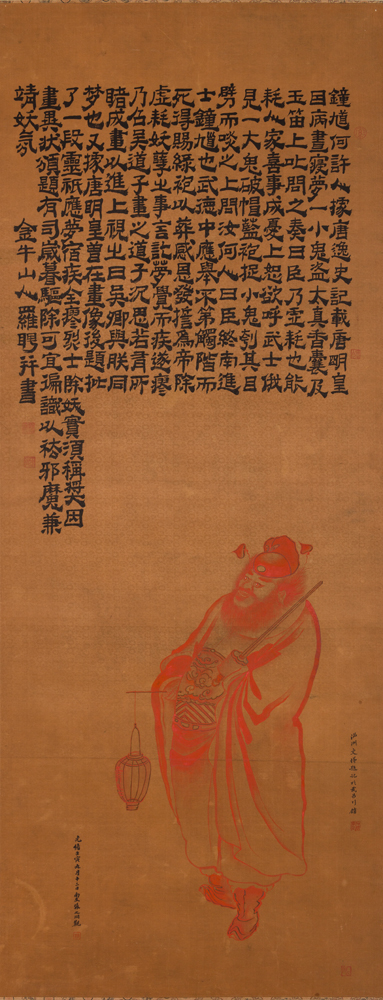 鐘馗何許人據唐逸史記載唐明皇
因病晝寢夢一小鬼盜太真香囊及
玉笛上叱問之奏曰臣乃虛耗也能
耗人家喜事成憂上怒欲呼武士俄
見一大鬼破帽藍袍捉小鬼刳其目
劈而啖之上問汝何人曰臣終南進
士鐘馗也武德中應舉不第觸階而
死得賜綠袍以葬感恩發誓為帝除
虛耗妖孽之事言訖夢覺而疾遂瘳
乃召吳道子畫之道子沉思若有所
睹成畫以進上視之曰吳卿與朕同
梦也又據唐明皇曾在畫像後題批
了一段靈祇應夢宿疾全瘳烈士除妖實須稱獎因
畫異狀頒題有司歲暮驅除可宜遍識以祛邪魔兼
靖妖氛
金牛山人羅聘并書
光緒壬寅五月